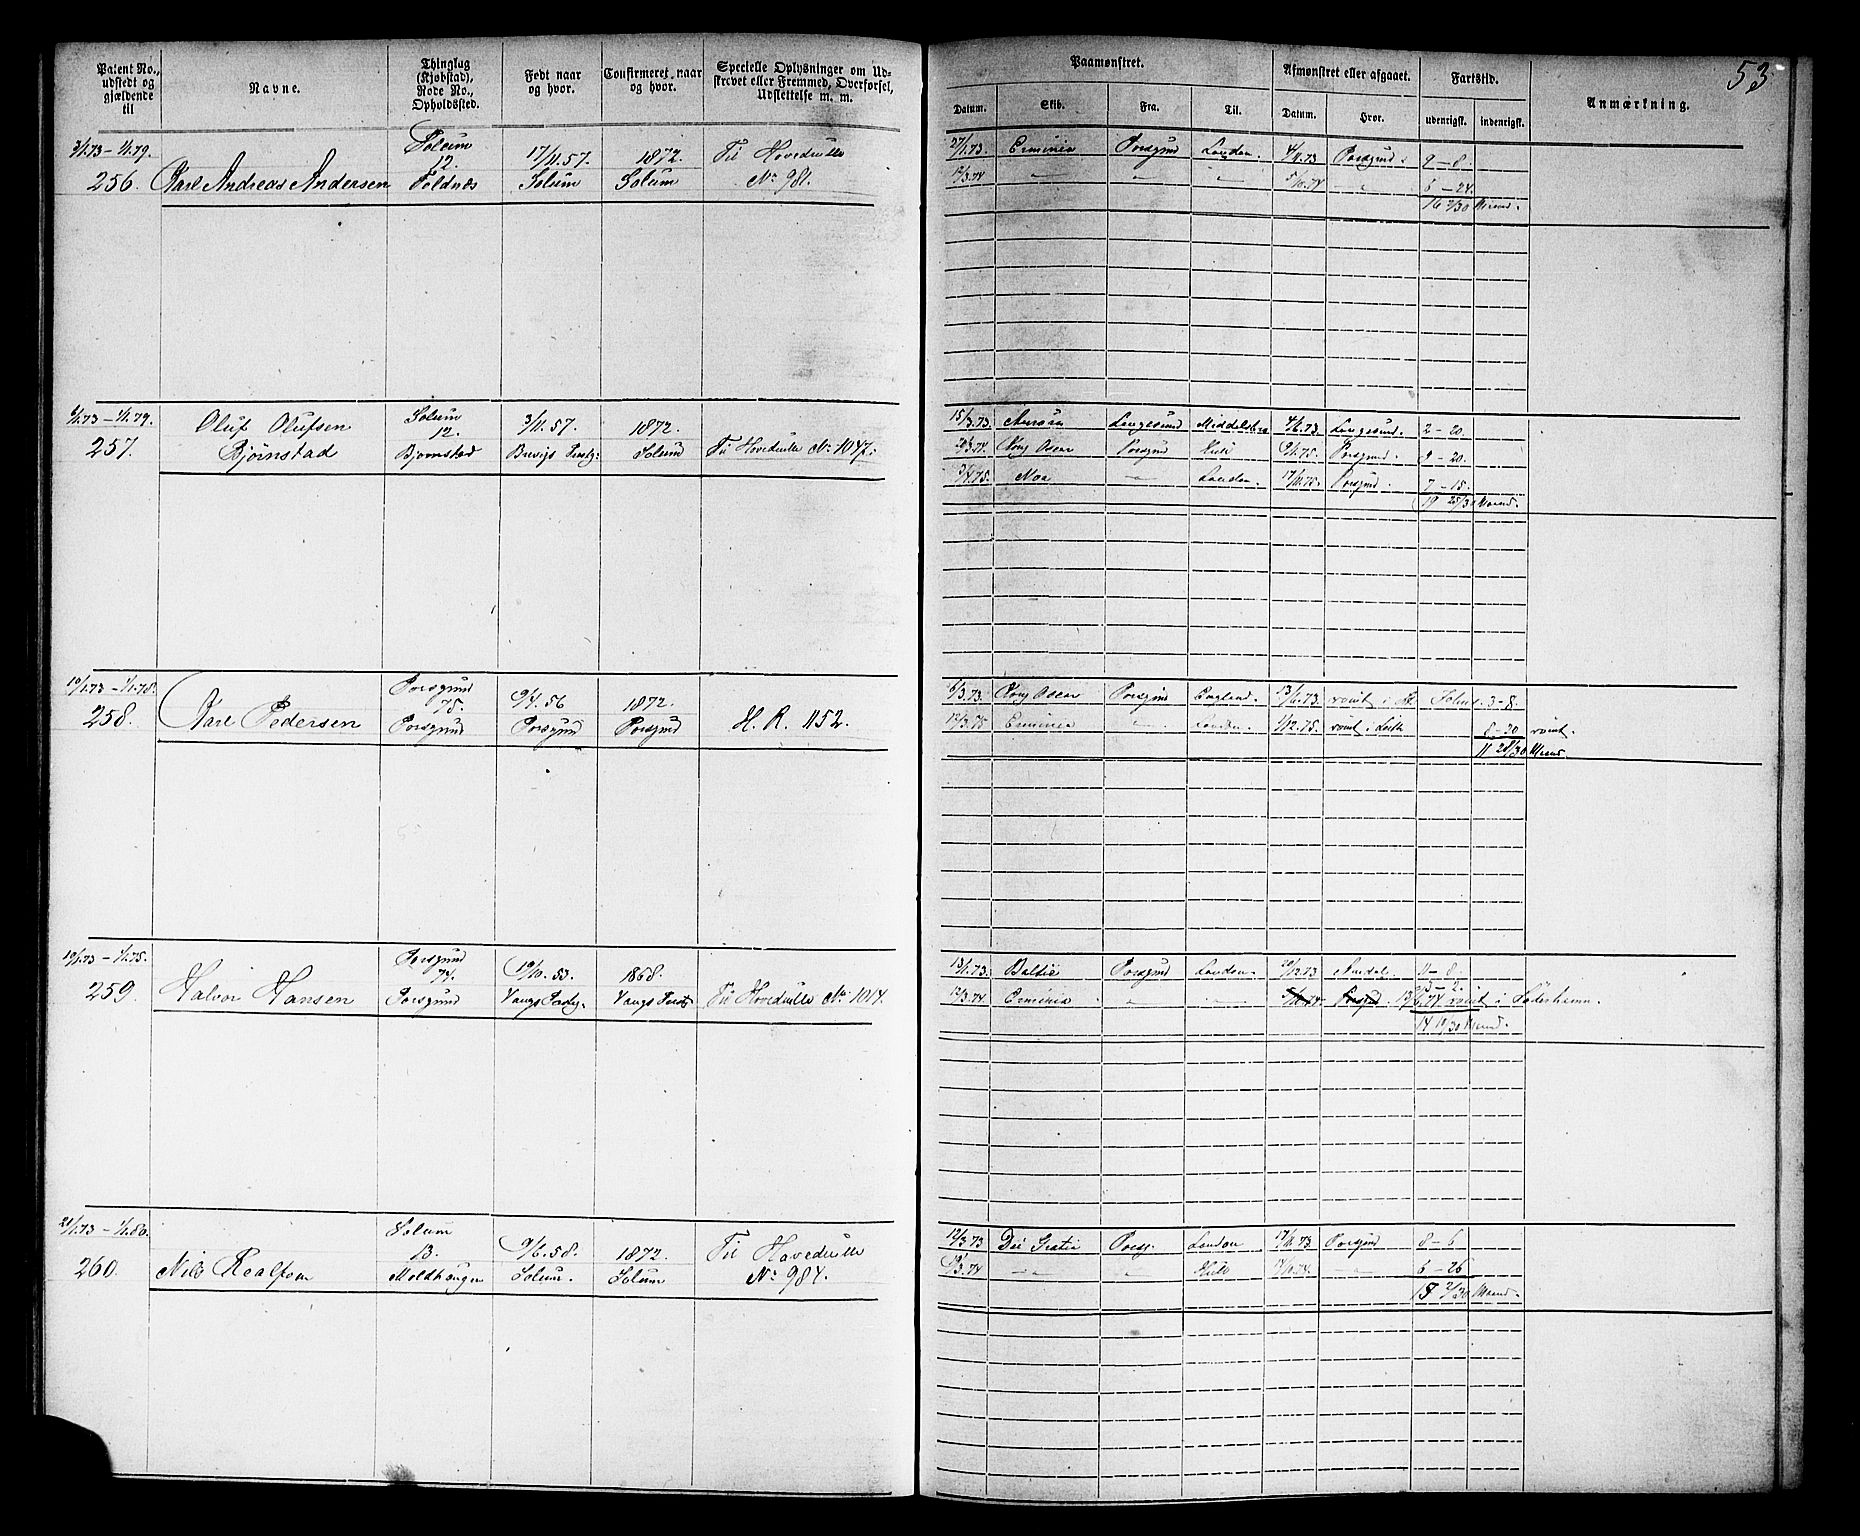 53
Patent No., udstedt og gjældende til
Navne.
Thinglag (Kjøbstad), Rode No., Opholdssted.
Født naar og hvor.
Confirmeret, naar og hvor.
Specielle Oplysninger om Udskrevet eller Fremmed, Overførsel, Udslettelse m. m.
Paamønstret.
Datum.
Skib.
Fra.
Til.
Afmønstret eller afgaaet.
Datum.
Hvor.
Fartstid.
udenrigsk.
indenrigsk.
Anmærkning.
3/1.73 – 1/1.79.
256.
Karl Andreas Andersen
Solum
12.
Foldnæs
17/11.57.
Solum
1872.
Solum
Til Hovedrulle
No 981.
27/1.73. Erminia Porsgrund London. 4/11.73 Porsgrund. 9–8.
12/3.74 — — — 5/10.74 — 6–24.
16 2/30 Maaned.
6/1.73 – 1/1.79.
257.
Oluf Olufsen
Bjørnstad
Solum
12.
Bjørnstad
3/11.57.
Brevigs Præstg.
1872.
Solum
Til Hovedrulle No 1047.
15/3.73. Aurora Langesund Middelsbro 4/6.73 Langesund. 2–20.
20/3.74. Kong Oscar Porsgrund Hull 9/1.75. Porsgrund. 9–20.
3/4.75. Noa — London. 17/11.75. Porsgrund. 7–15.
19 25/30 Maaned.
10/1.73 – 1/1.78.
258.
Karl Pedersen
Porsgrund
75.
Porsgrund
9/4.56
Porsgrund
1872.
Porsgrund
H. R. 1152.
6/3.73. Kong Oscar Porsgrund England. 13/6.73 rømt i St. Johns. 3–8.
12/3.75 Erminia — London. 1/12.75. rømt i Leith 8–20 rømt.
11 28/30 Maaned.
10/1.73 – 1/1.75.
259.
Halvor Hansen
Porsgrund
74.
Porsgrund
19/10.53.
Vangs Præstg.
1868.
Vangs Præstg
Til Hovedrulle No 1014.
13/1.73. Baltic Porsgrund London. 20/12.73 Arendal. 11–8.
3–2.
12/3.74 Erminia — — 5/10.74. Porsgrund. 13/6.74 rømt i Söderhamn.
14 10/30 Maaned.
21/1.73 – 1/1.80.
260.
Nils Realfsen
Solum
13.
Moldhaugen
9/6.58.
Solum.
1872.
Solum
Til Hovedrulle
No 984.
12/3.73 Dei Gratia Porsg. London 17/11.73 Porsgrund 8–6
19/3.74 — — Hull 14/10.74. — 6–26
15 2/30 Maaned.